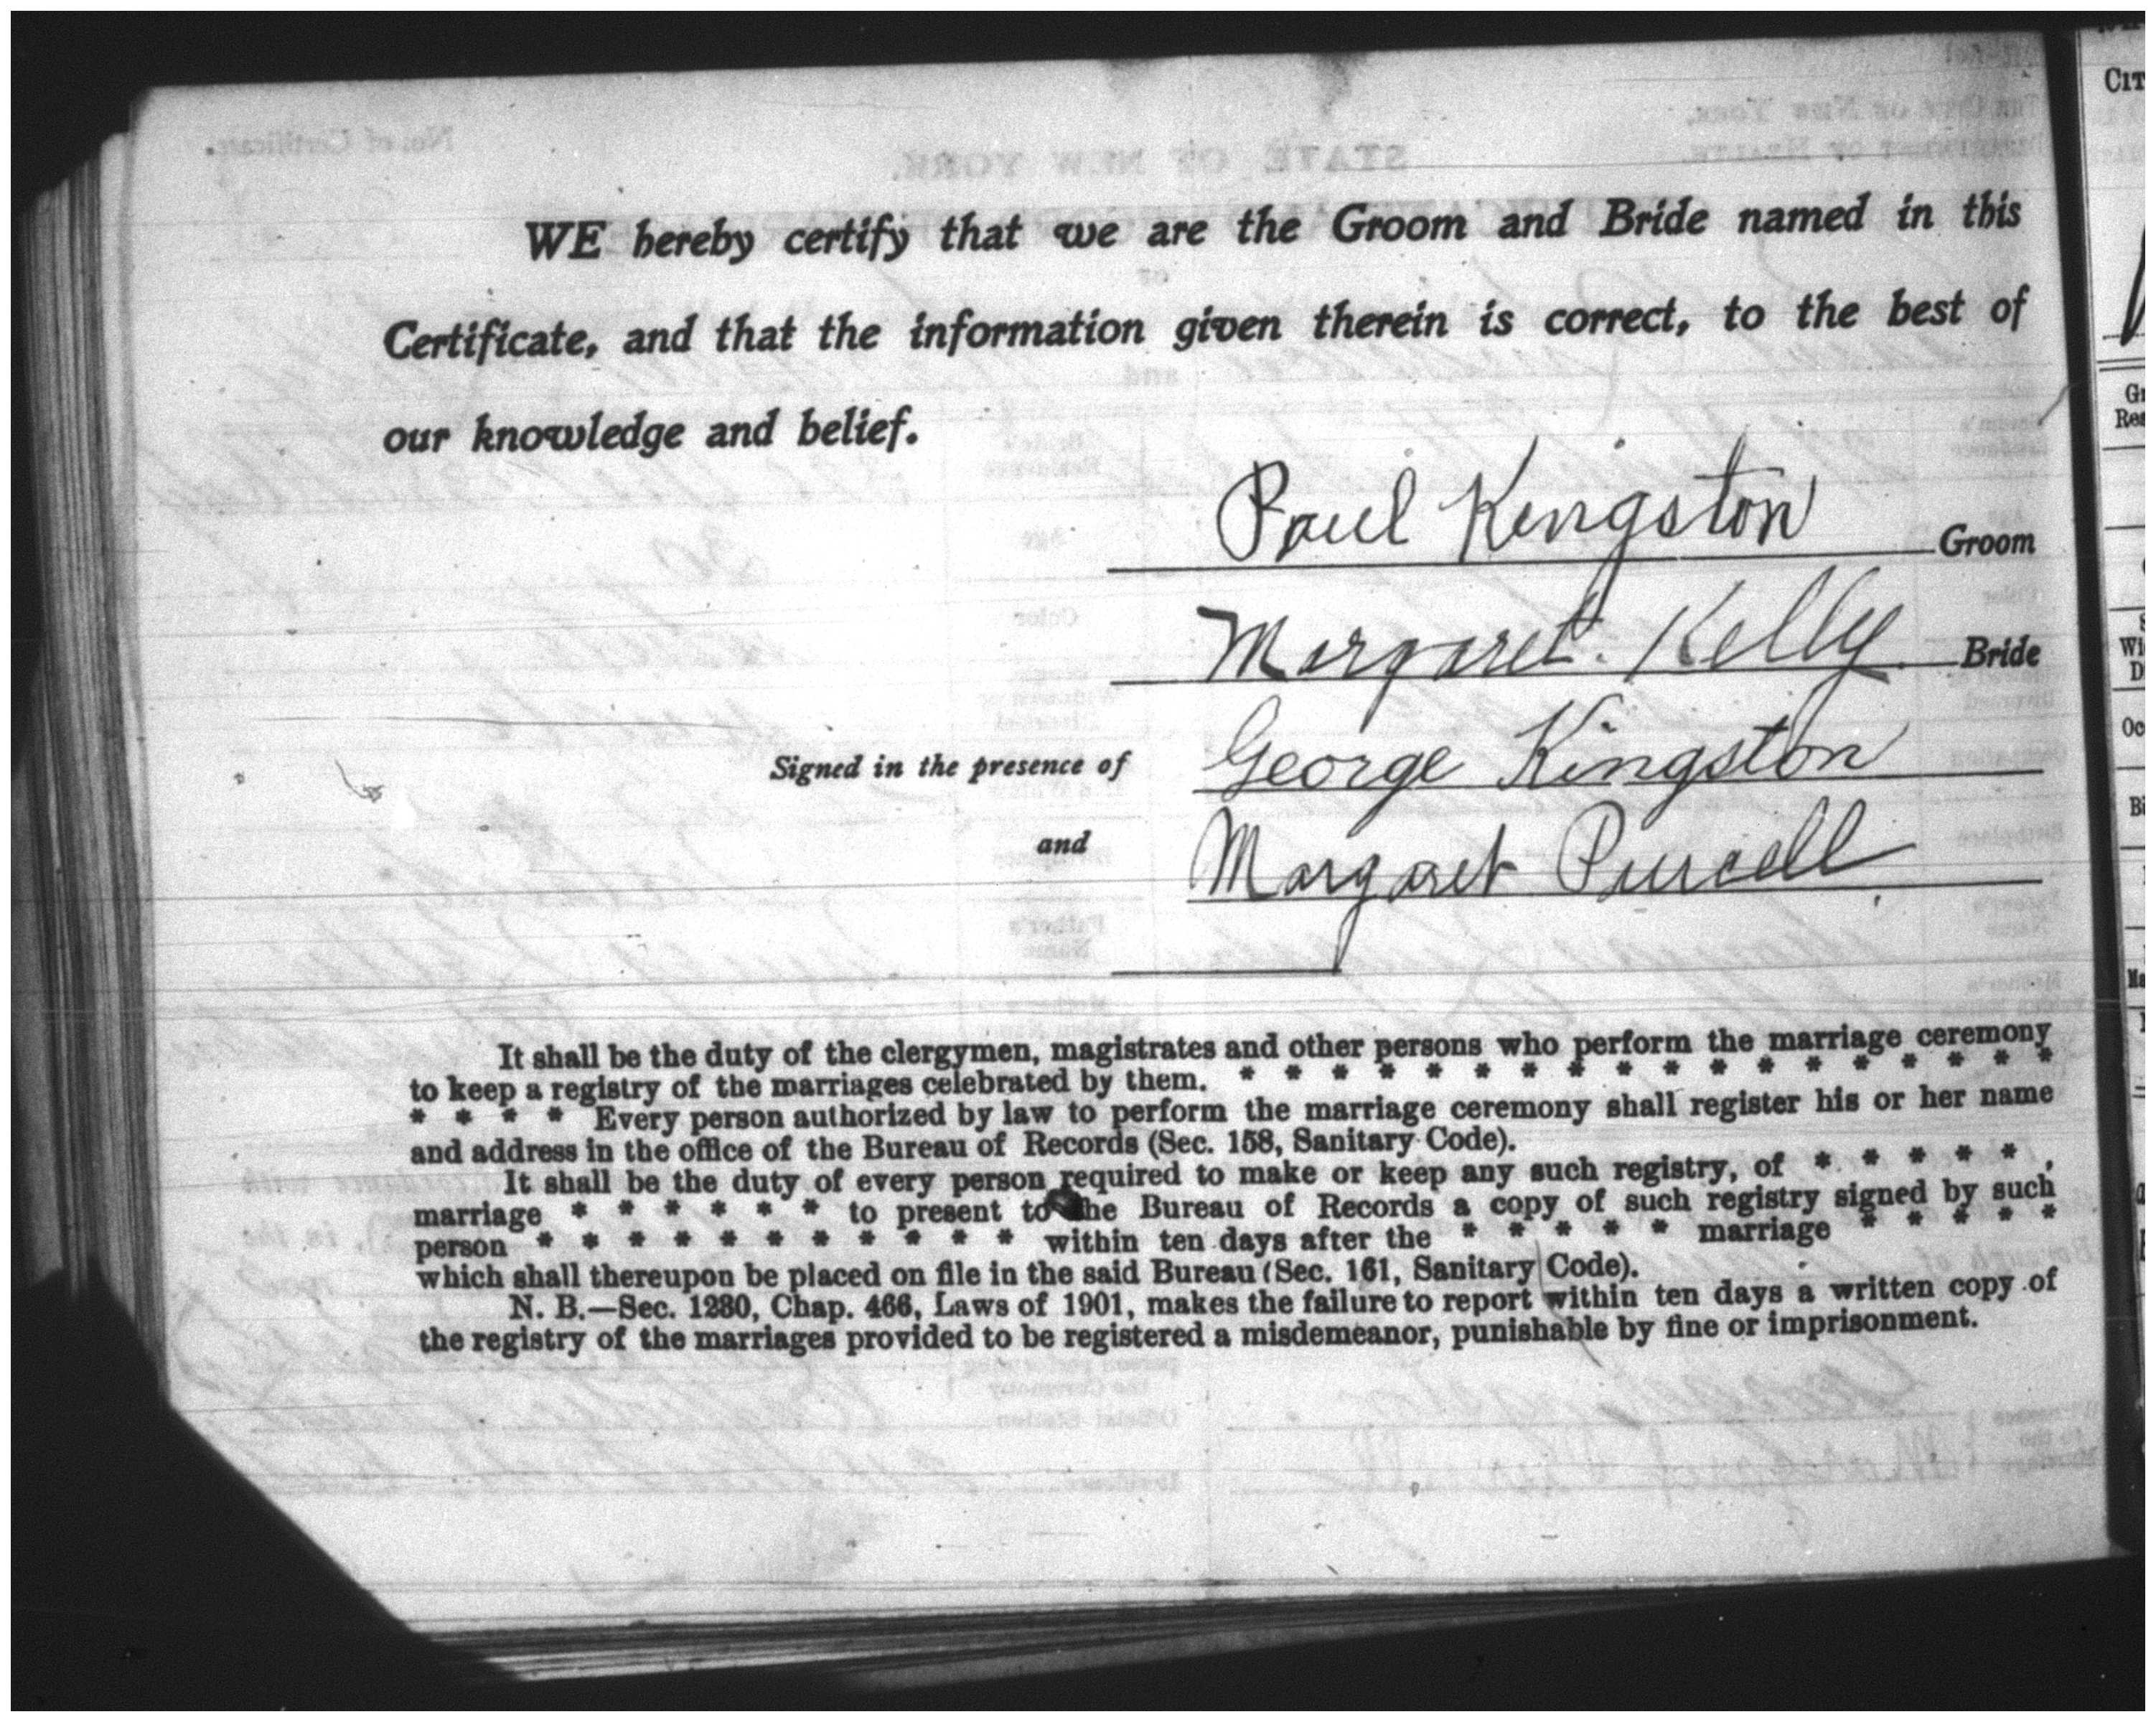 WE hereby certify that we are the Groom and Bride named in this
Certificate, and that the information given therein is correct, to the best of
our knowledge and belief.
Paul Kingston Groom
Margaret. Kelly Bride
Signed in the presence of George Kingston
and Margaret Purcell
It shall be the duty of the clergymen, magistrates and other persons who perform the marriage ceremony
to keep a registry of the marriages celebrated by them. * * * * * * * * * * * * * * * * * *
* * * * Every person authorized by law to perform the marriage ceremony shall register his or her name
and address in the office of the Bureau of Records (Sec. 158, Sanitary Code).
It shall be the duty of every person required to make or keep any such registry, of * * * * * ,
marriage * * * * * * to present to the Bureau of Records a copy of such registry signed by such
person * * * * * * * * * * * within ten days after the * * * * * marriage * * * * *
which shall thereupon be placed on file in the said Bureau (Sec. 161, Sanitary Code).
N. B.—Sec. 1280, Chap. 466, Laws of 1901, makes the failure to report within ten days a written copy of
the registry of the marriages provided to be registered a misdemeanor, punishable by fine or imprisonment.